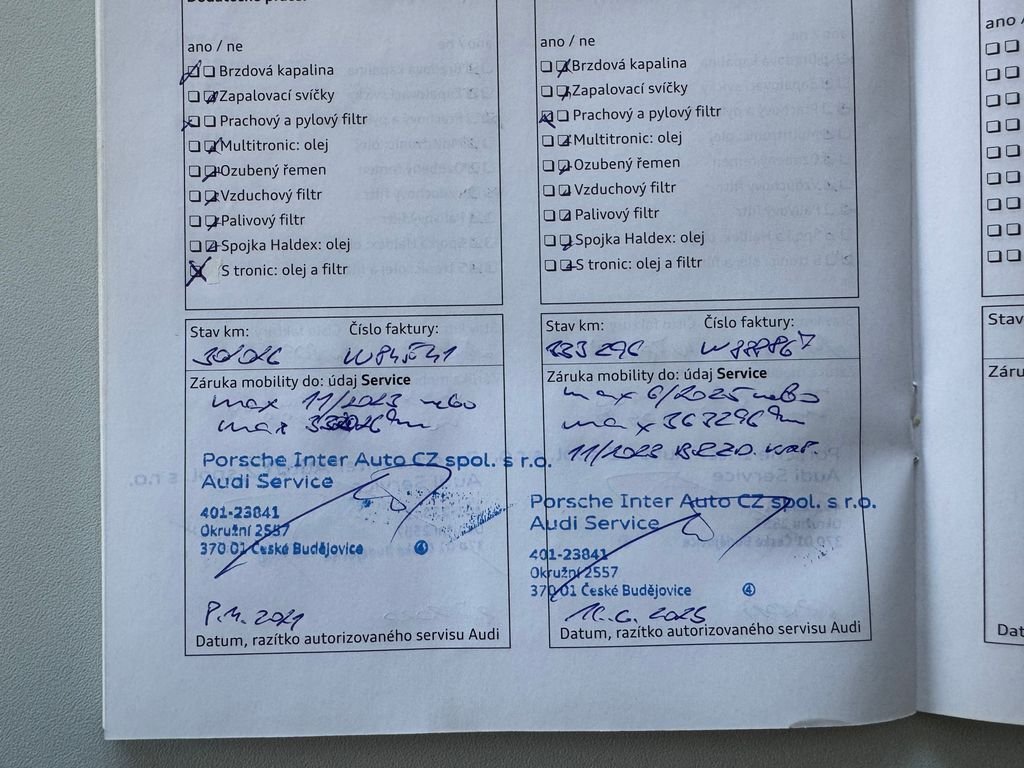 Dodatečné práce:
ano / ne
Brzdová kapalina
Zapalovací svíčky
Prachový a pylový filtr
Multitronic: olej
Ozubený řemen
Vzduchový filtr
Palivový filtr
Spojka Haldex: olej
S tronic: olej a filtr
Stav km: Číslo faktury:
Záruka mobility do: údaj Service
max 11/2023 nebo
max km
Porsche Inter Auto CZ spol. s r.o.
Audi Service
401-23841
Okružní 2557
370 01 České Budějovice 4
2021
Datum, razítko autorizovaného servisu Audi
ano / ne
Brzdová kapalina
Zapalovací svíčky
Prachový a pylový filtr
Multitronic: olej
Ozubený řemen
Vzduchový filtr
Palivový filtr
Spojka Haldex: olej
S tronic: olej a filtr
Stav km: Číslo faktury:
333 296 W88867
Záruka mobility do: údaj Service
max 6/2025 nebo
max 363296 km
11/2023 BRZD. KAP.
Porsche Inter Auto CZ spol. s r.o.
Audi Service
401-23841
Okružní 2557
370 01 České Budějovice 4
Datum, razítko autorizovaného servisu Audi
ano
Stav
Záru
Dat